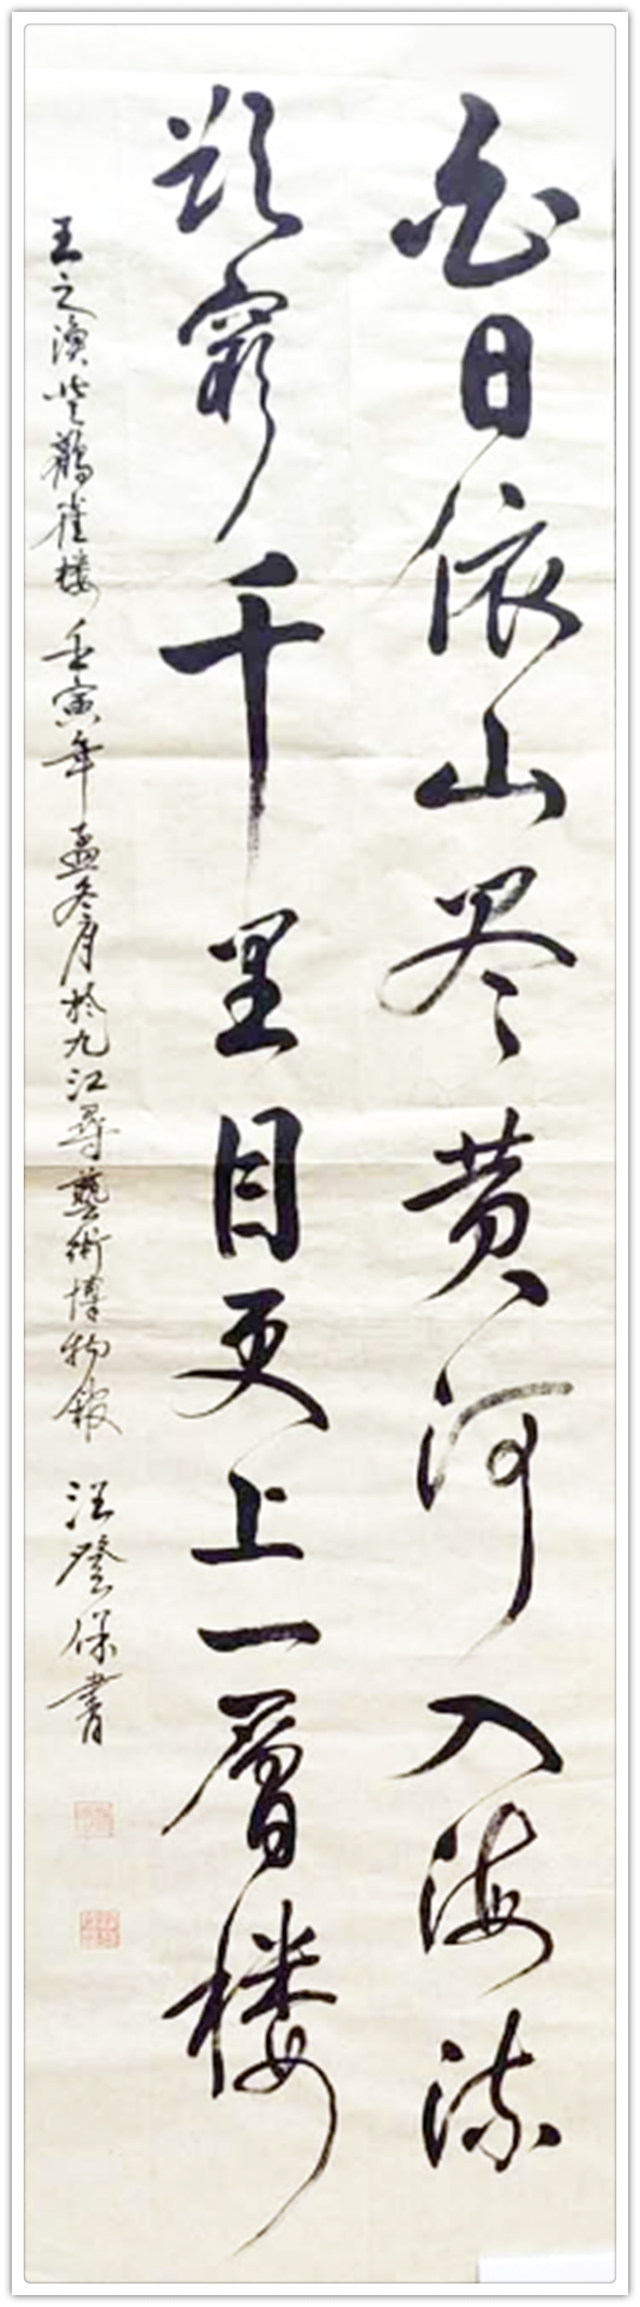 白日依山尽黄河入海流
欲穷千里目更上一层楼
王之涣登鹳雀楼 壬寅年孟冬月於九江寻藝術博物馆 汪登保書